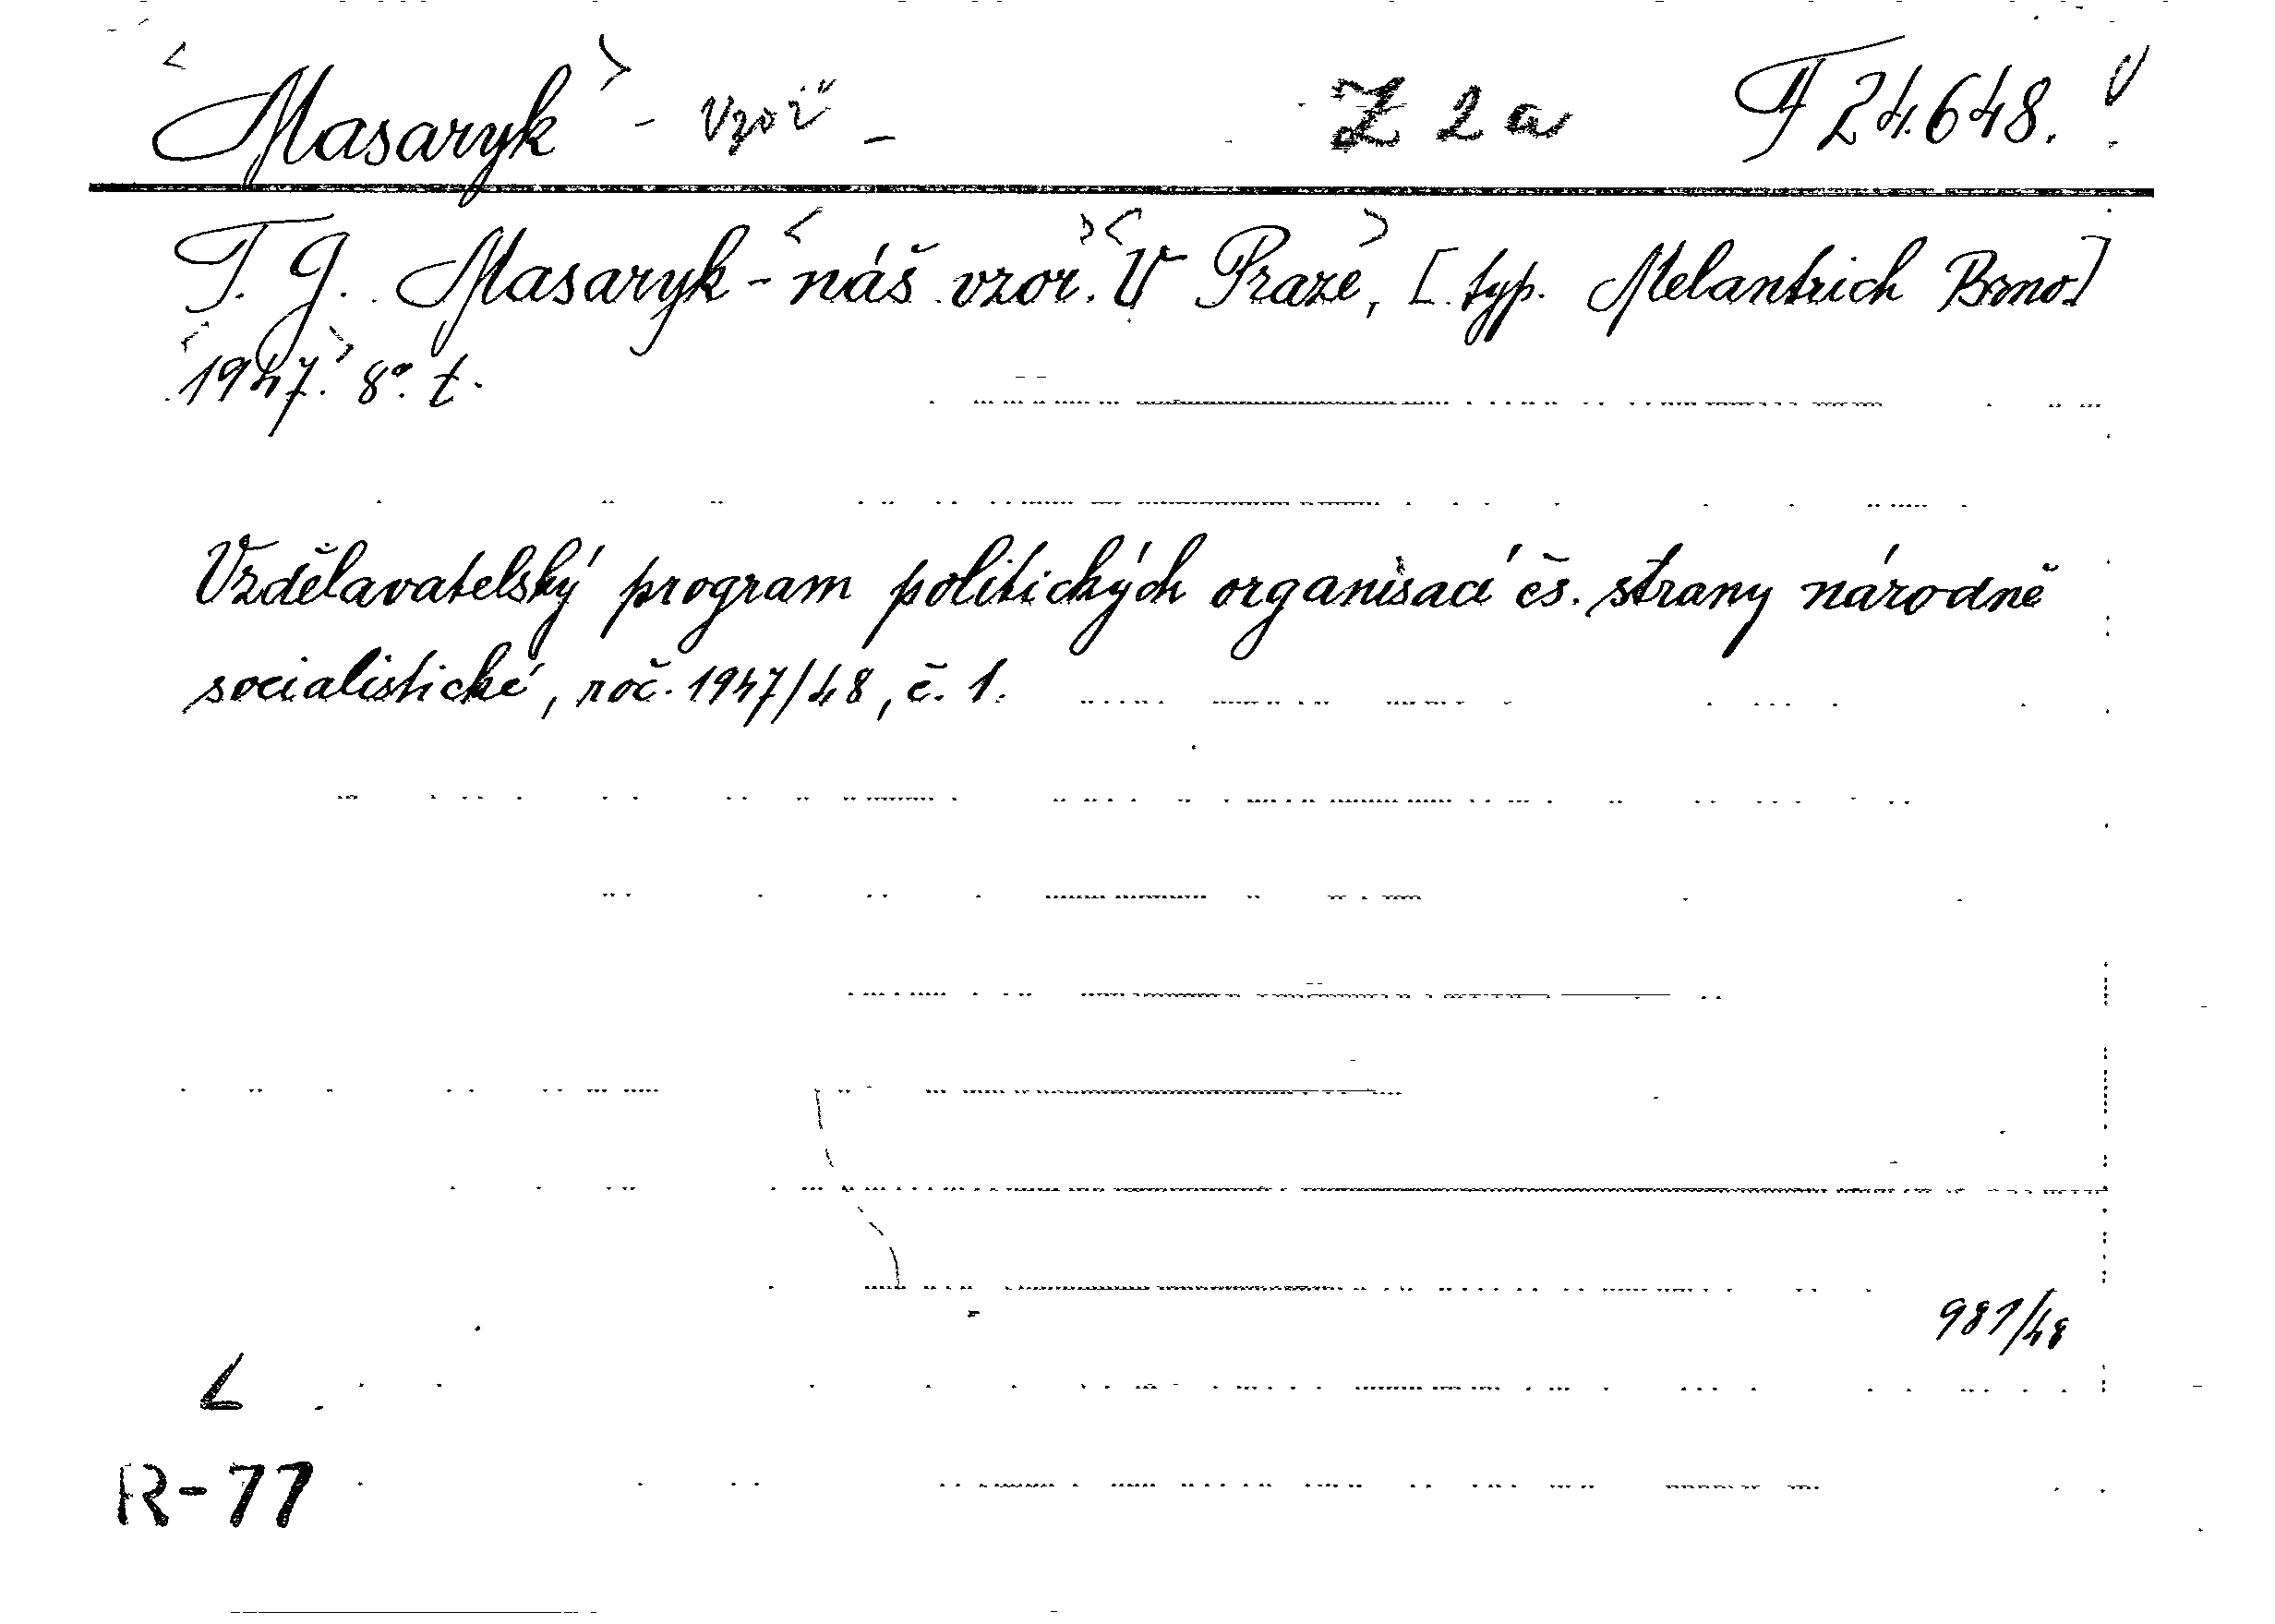 <Masaryk> - vzoř - Z 2a F 24.648. V
T. G. Masaryk - <náš vzor.> <V Praze,> [typ. Melantrich Brno]
<1947.> 8°. t.
Vzdělavatelský program politických organisací čs. strany národně
socialistické, roč. 1947/48, č. 1.
981/48
L
R-77